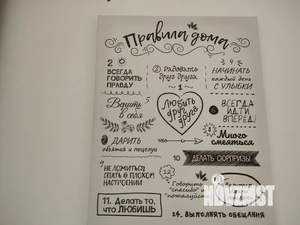 Правила дома
2
ВСЕГДА
ГОВОРИТЬ
ПРАВДУ
Радовать
друг друга
НАЧИНАТЬ
каждый день
С УЛЫБКИ
1
Любить
друг
друга
Верить
в себя
ВСЕГДА
ИДТИ
ВПЕРЕД!
Много
смеяться
ДАРИТЬ
объятия и поцелуи
10
ДЕЛАТЬ СЮРПРИЗЫ
НЕ ЛОЖИТЬСЯ
СПАТЬ В ПЛОХОМ
НАСТРОЕНИИ
12
Говорить
"спасибо" и
"пожалуйста"
11. Делать то,
что ЛЮБИШЬ
14. ВЫПОЛНЯТЬ ОБЕЩАНИЯ